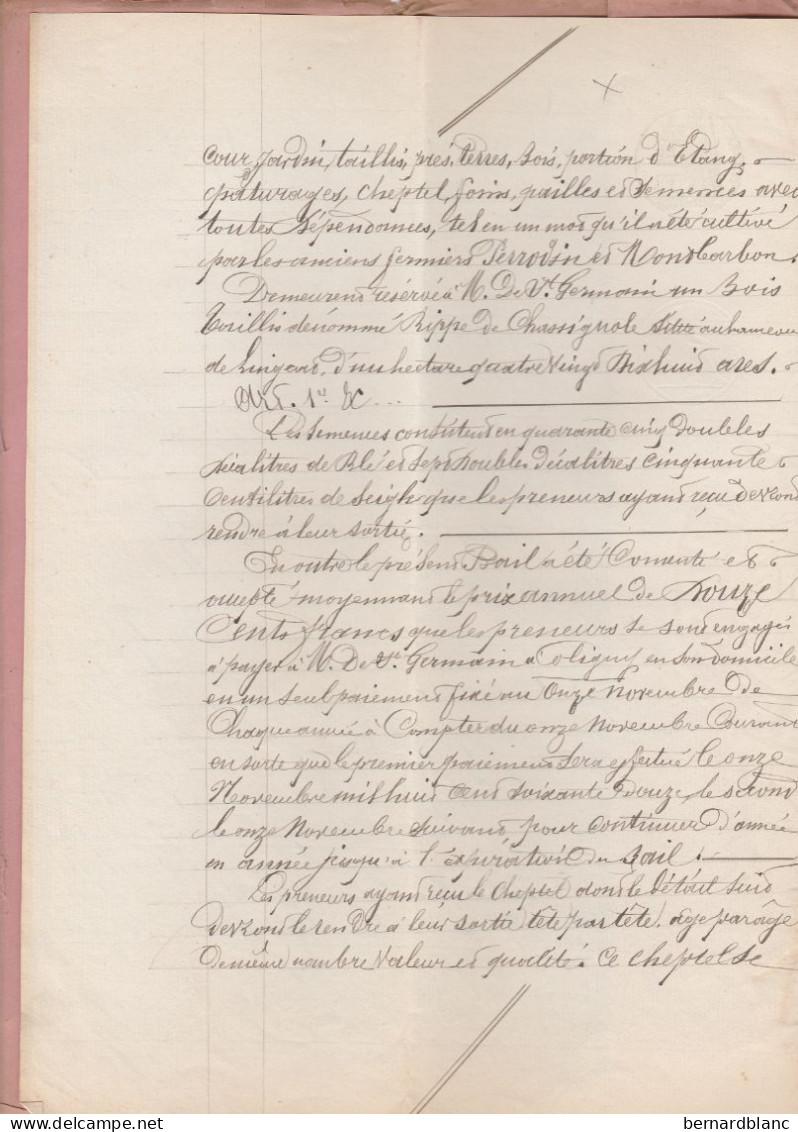 Cour, Jardin, taillis, prés, terres, Bois, portion d'Etang,
pâturages, Cheptel, foins, pailles et semences avec
toutes dépendances, tel en un mot qu'il a été cultivé
par les anciens fermiers Perrodin et Montbarbon.
Demeurent réservé à M. De St. Germain un Bois
taillis dénommé Rippe de Chassignole situé au hameau
de Lingeat, d'un hectare quatre vingt dix huit ares.
Art. 1er &c...
Les semences constituent en quarante cinq doubles
décalitres de Blé et sept doubles décalitres cinquante
centilitres de Seigle que les preneurs ayant reçu devront
rendre à leur sortie.
En outre le présent Bail a été Consenti et
accepté moyennant le prix annuel de Douze
Cents francs que les preneurs se sont engagés
à payer à M. De St. Germain à Coligny en son domicile
en un seul paiement fixé au Onze Novembre de
Chaque année à Compter du onze Novembre Courant
en sorte que le premier paiement sera effectué le onze
Novembre mil huit cent soixante douze, le second
le onze Novembre suivant pour continuer d'année
en année jusqu'à l'expiration du Bail.
Les preneurs ayant reçu le Cheptel dont le détail suit
devront le rendre à leur sortie tête par tête, âge par âge
de même nombre Valeur et qualité. Ce Cheptel se
bernardblanc